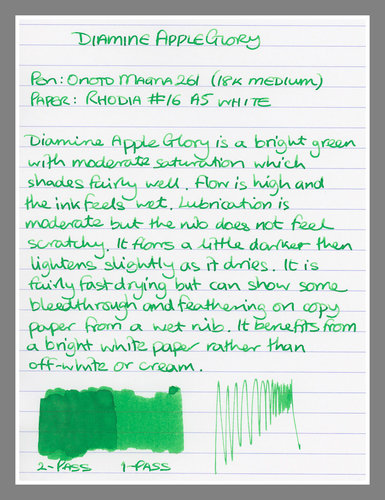 DIAMINE APPLE GLORY
PEN: ONOTO MAGNA 261 (18K MEDIUM)
PAPER: RHODIA #16 A5 WHITE
Diamine Apple Glory is a bright green
with moderate saturation which
shades fairly well. Flow is high and
the ink feels wet. Lubrication is
moderate but the nib does not feel
scratchy. It flows a little darker then
lightens slightly as it dries. It is
fairly fast drying but can show some
bleedthrough and feathering on copy
paper from a wet nib. It benefits from
a bright white paper rather than
off-white or cream.
2-PASS 1-PASS